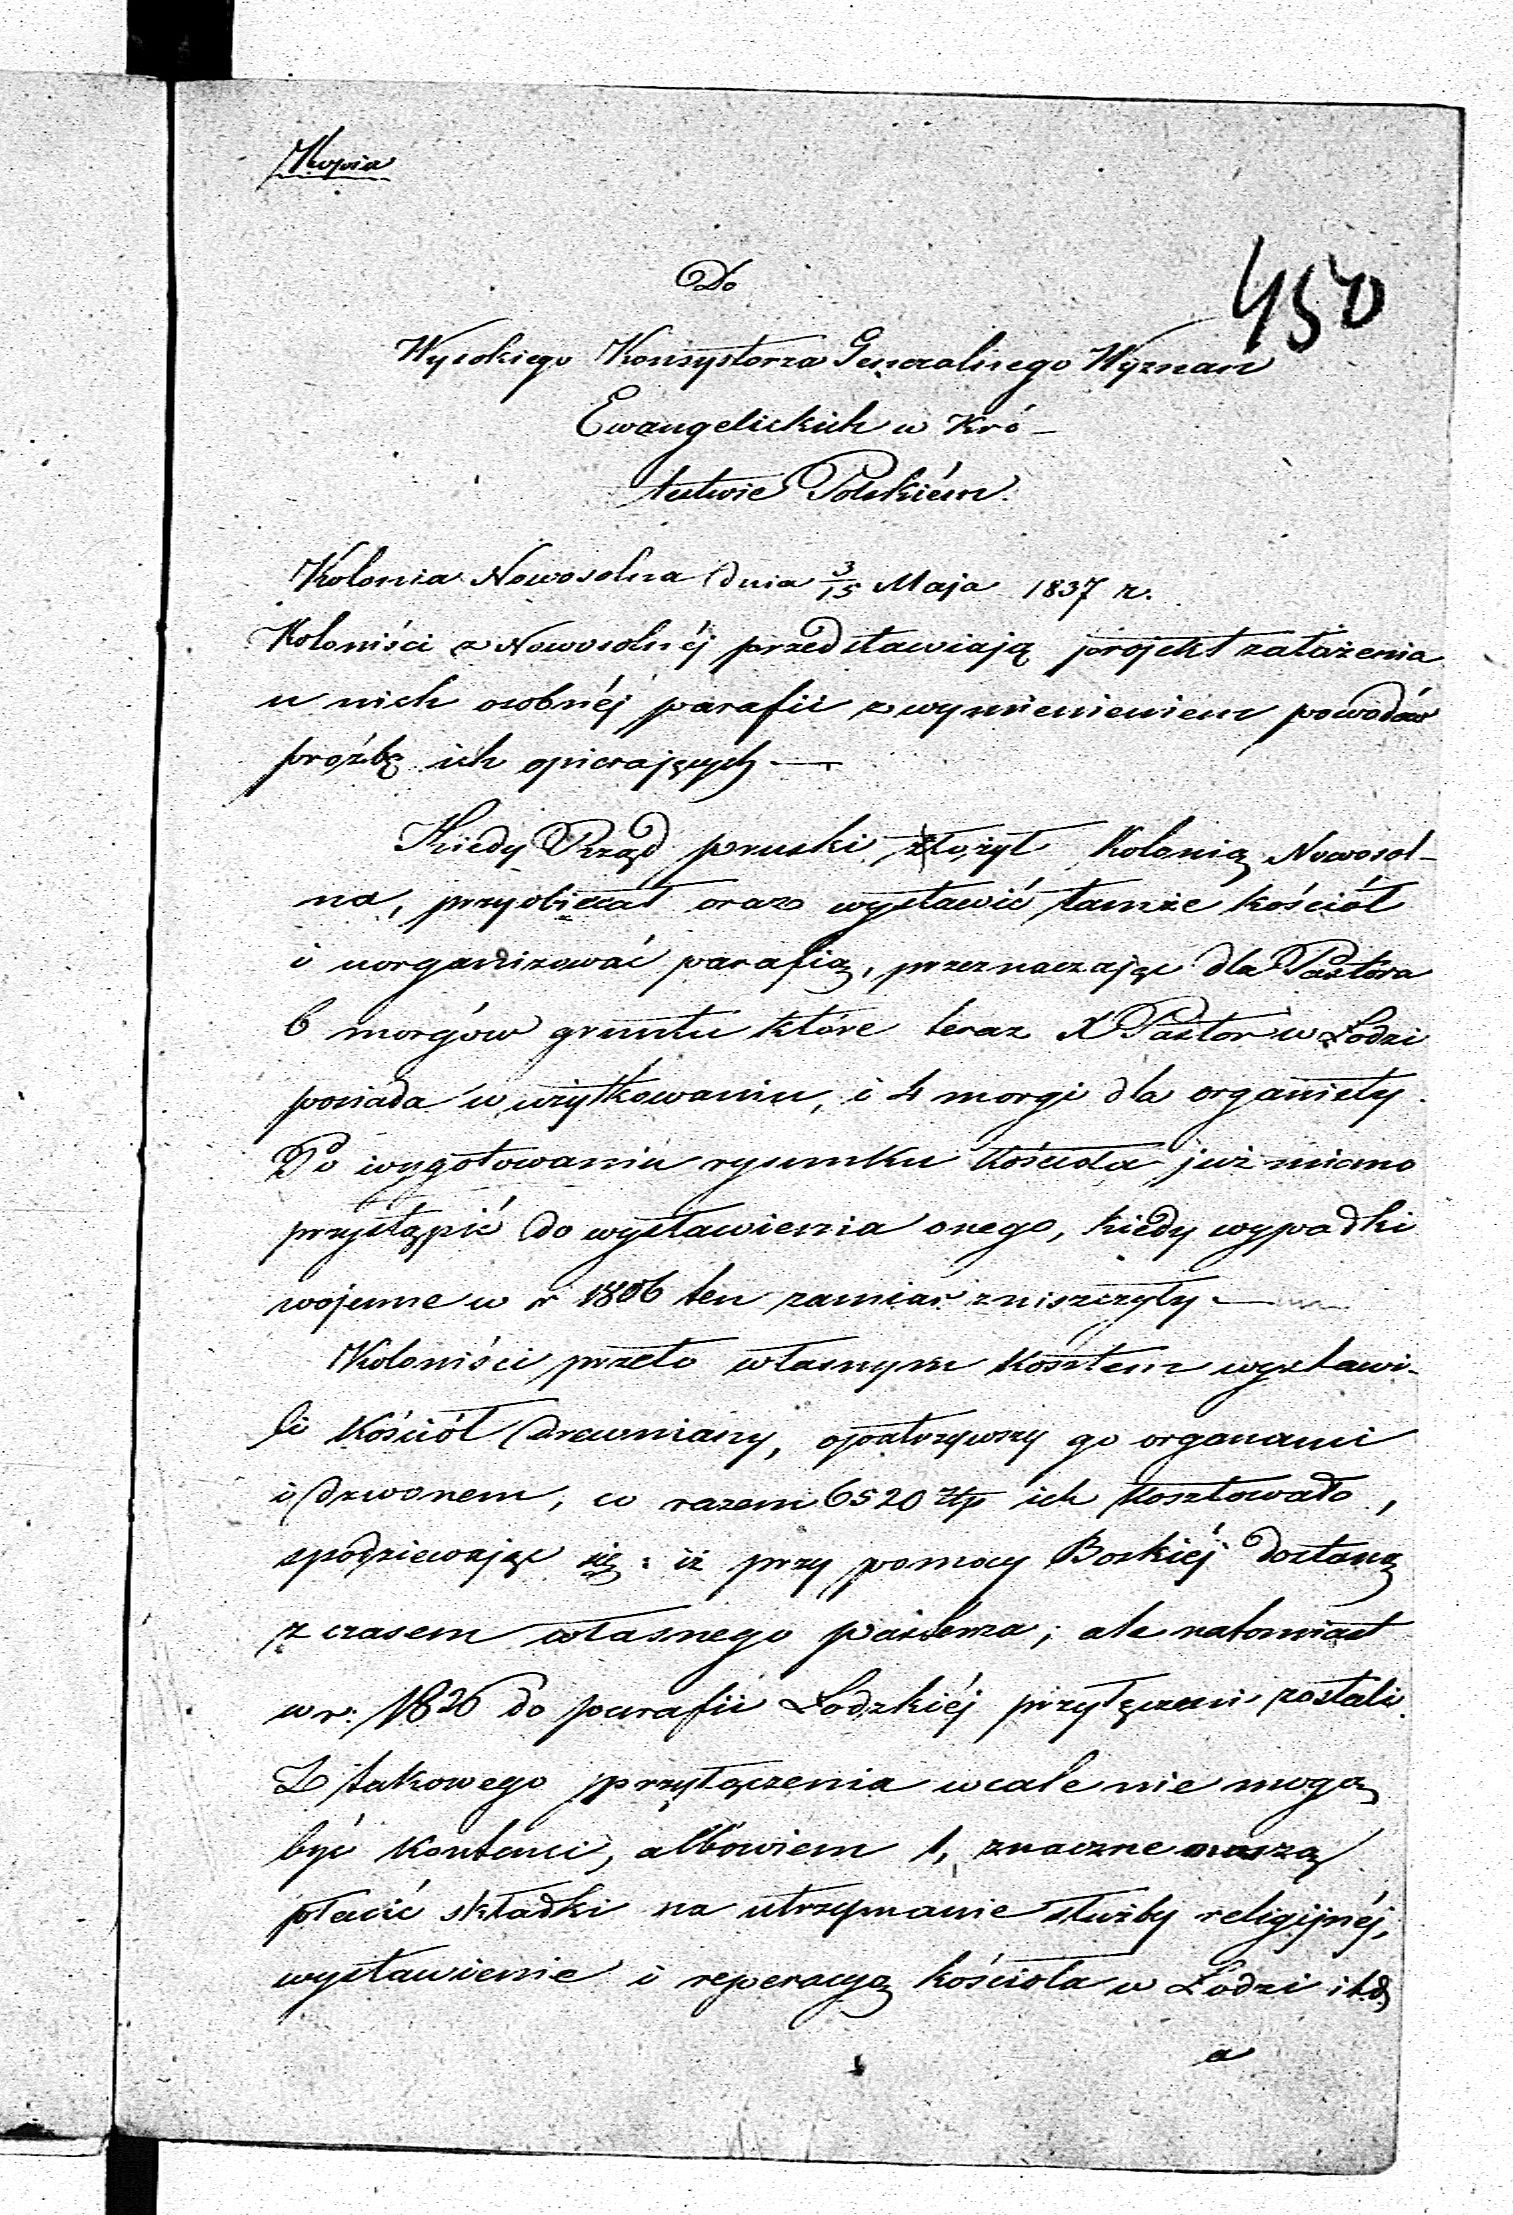 Kopia
450
Do
Wysokiego Konsystorza Generalnego Wyznań
Ewangelickich w Kró-
lestwie Polskiém.
Kolonia Nowosolna dnia 3/15 Maja 1837 r.
Koloniści z Nowosolnéj przedstawiają projekt założenia
u nich osobnéj parafii z wymienieniem powodów
prożbę ich opierających —
Kiedy Rząd pruski złożył Kolonią Nowosol-
na, przyobiecał oraz wystawić tamże kościół
i uorganizować parafią, przeznaczając dla Pastora
6 morgów gruntu które teraz X Pastor w Łodzi
posiada w użytkowaniu, i 4 morgi dla organisty.
Po wygotowaniu rysunku Kościoła już miano
przystąpić do wystawienia onego, kiedy wypadki
wojenne w r 1806 ten zamiar zniszczyły —
Koloniści przeto własnym kosztem wystawi-
li Kościół drewniany, opatrzywszy go organami
i dzwonem, co razem 6520 złp ich kosztowało,
spodziewając się: iż przy pomocy Boskiéj dostaną
z czasem własnego pasterza; ale natomiast
w r. 1826 do parafii Łodzkiéj przyłęczeni zostali.
Z takowego przyłączenia wcale nie mogą
być kontenci, albowiem 1, znaczne muszą
płacić składki na utrzymanie służby religijnéj,
wystawienie i reperacyą kościoła w Łodzi itd
a